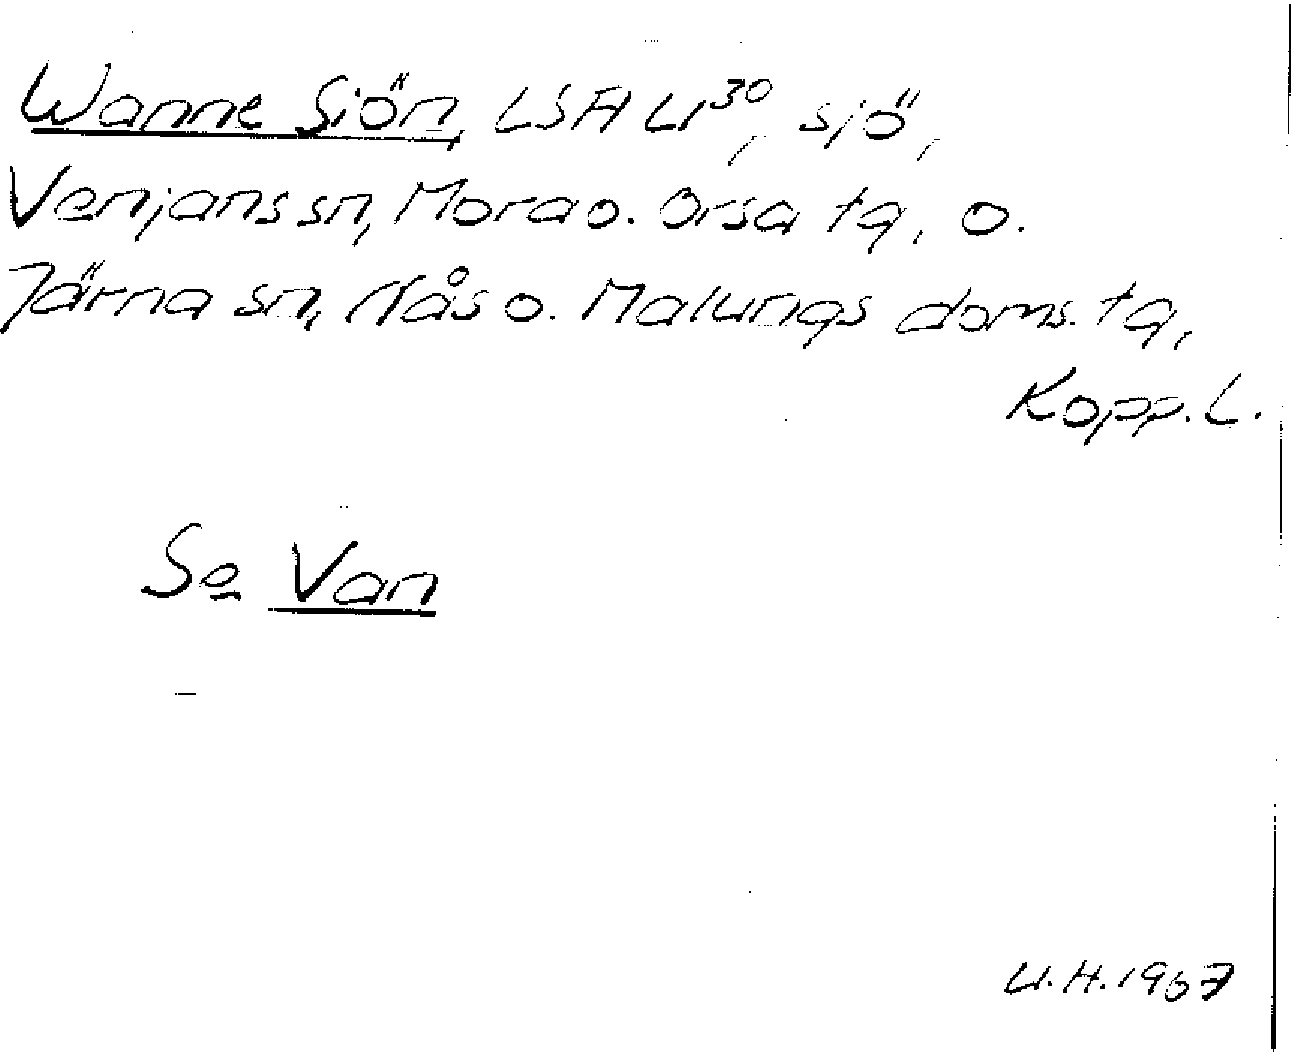 Wanne Siön, LSA U³⁰, sjö,
Venjans sn, Mora o. Orsa tg, o.
Järna sn, Nås o. Malungs doms. tg,
Kopp. L.
Se Van
U.H. 1967